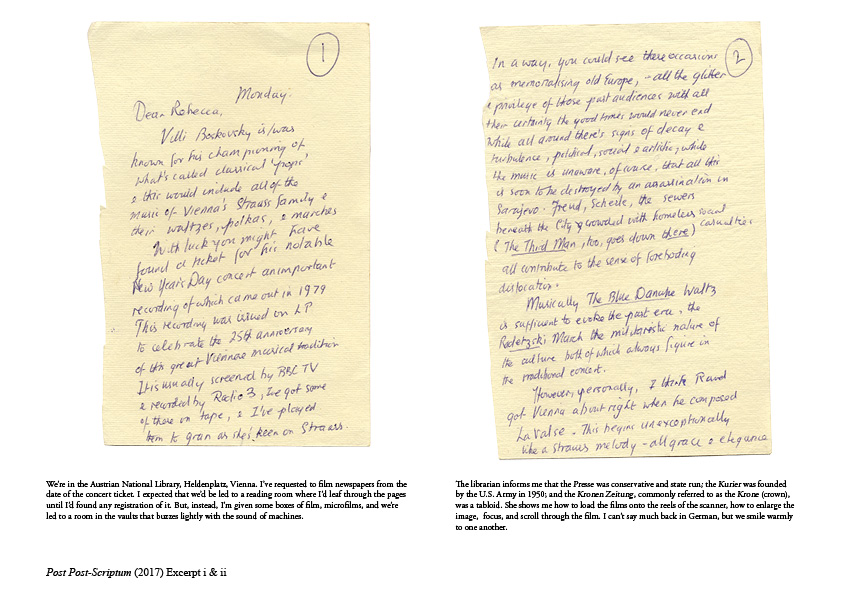 1
Monday.
Dear Rebecca,
Villi Boskovsky is/was
known for his championing of
what's called classical 'pops'
& this would include all of the
music of Vienna's Strauss family &
their waltzes, polkas, & marches
With luck you might have
found a ticket for his notable
New Year's Day concert an important
recording of which came out in 1979
This recording was issued on LP
to celebrate the 25th anniversary
of this great Viennese musical tradition
It is usually screened by BBC TV
& recorded by Radio 3, I've got some
of these on tape, & I've played
them to gran as she's keen on Strauss.
We're in the Austrian National Library, Heldenplatz, Vienna. I've requested to film newspapers from the
date of the concert ticket. I expected that we'd be led to a reading room where I'd leaf through the pages
until I'd found any registration of it. But, instead, I'm given some boxes of film, microfilms, and we're
led to a room in the vaults that buzzes lightly with the sound of machines.
2
In a way, you could see these occasions
as memorialising old Europe, - all the glitter
& privilege of those past audiences with all
their certainty the good times would never end
while all around there's signs of decay &
turbulence, political, social & artistic, while
the music is unaware, of course, that all this
is soon to be destroyed by an assassination in
Sarajevo. Freud, Schiele, the sewers
beneath the City crowded with homeless social
(The Third Man, too, goes down there) casualties
all contribute to the sense of foreboding
dislocation.
Musically The Blue Danube Waltz
is sufficient to evoke the past era, the
Radetzski March the militaristic nature of
the culture both of which always figure in
the traditional concert.
However, personally, I think Ravel
got Vienna about right when he composed
La Valse. This begins unexceptionally
like a Strauss melody - all grace & elegance
The librarian informs me that the Presse was conservative and state run; the Kurier was founded
by the U.S. Army in 1950; and the Kronen Zeitung, commonly referred to as the Krone (crown),
was a tabloid. She shows me how to load the films onto the reels of the scanner, how to enlarge the
image, focus, and scroll through the film. I can't say much back in German, but we smile warmly
to one another.
Post Post-Scriptum (2017) Excerpt i & ii